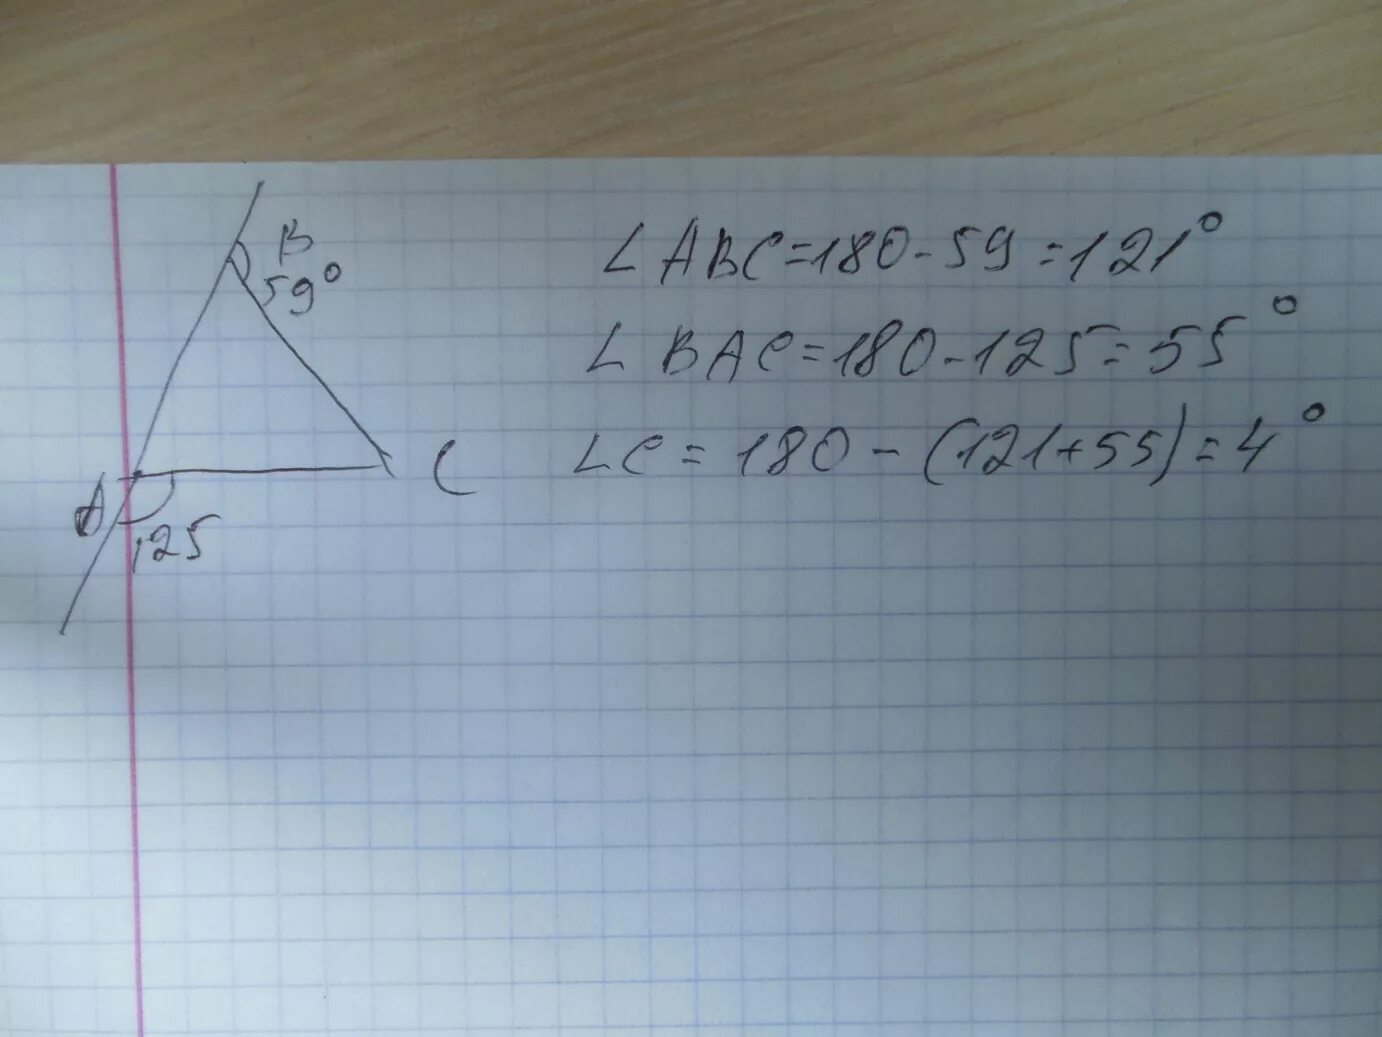 B
59°
A
C
125
∠ABC=180-59=121°
∠BAC=180-125=55°
∠C=180-(121+55)=4°